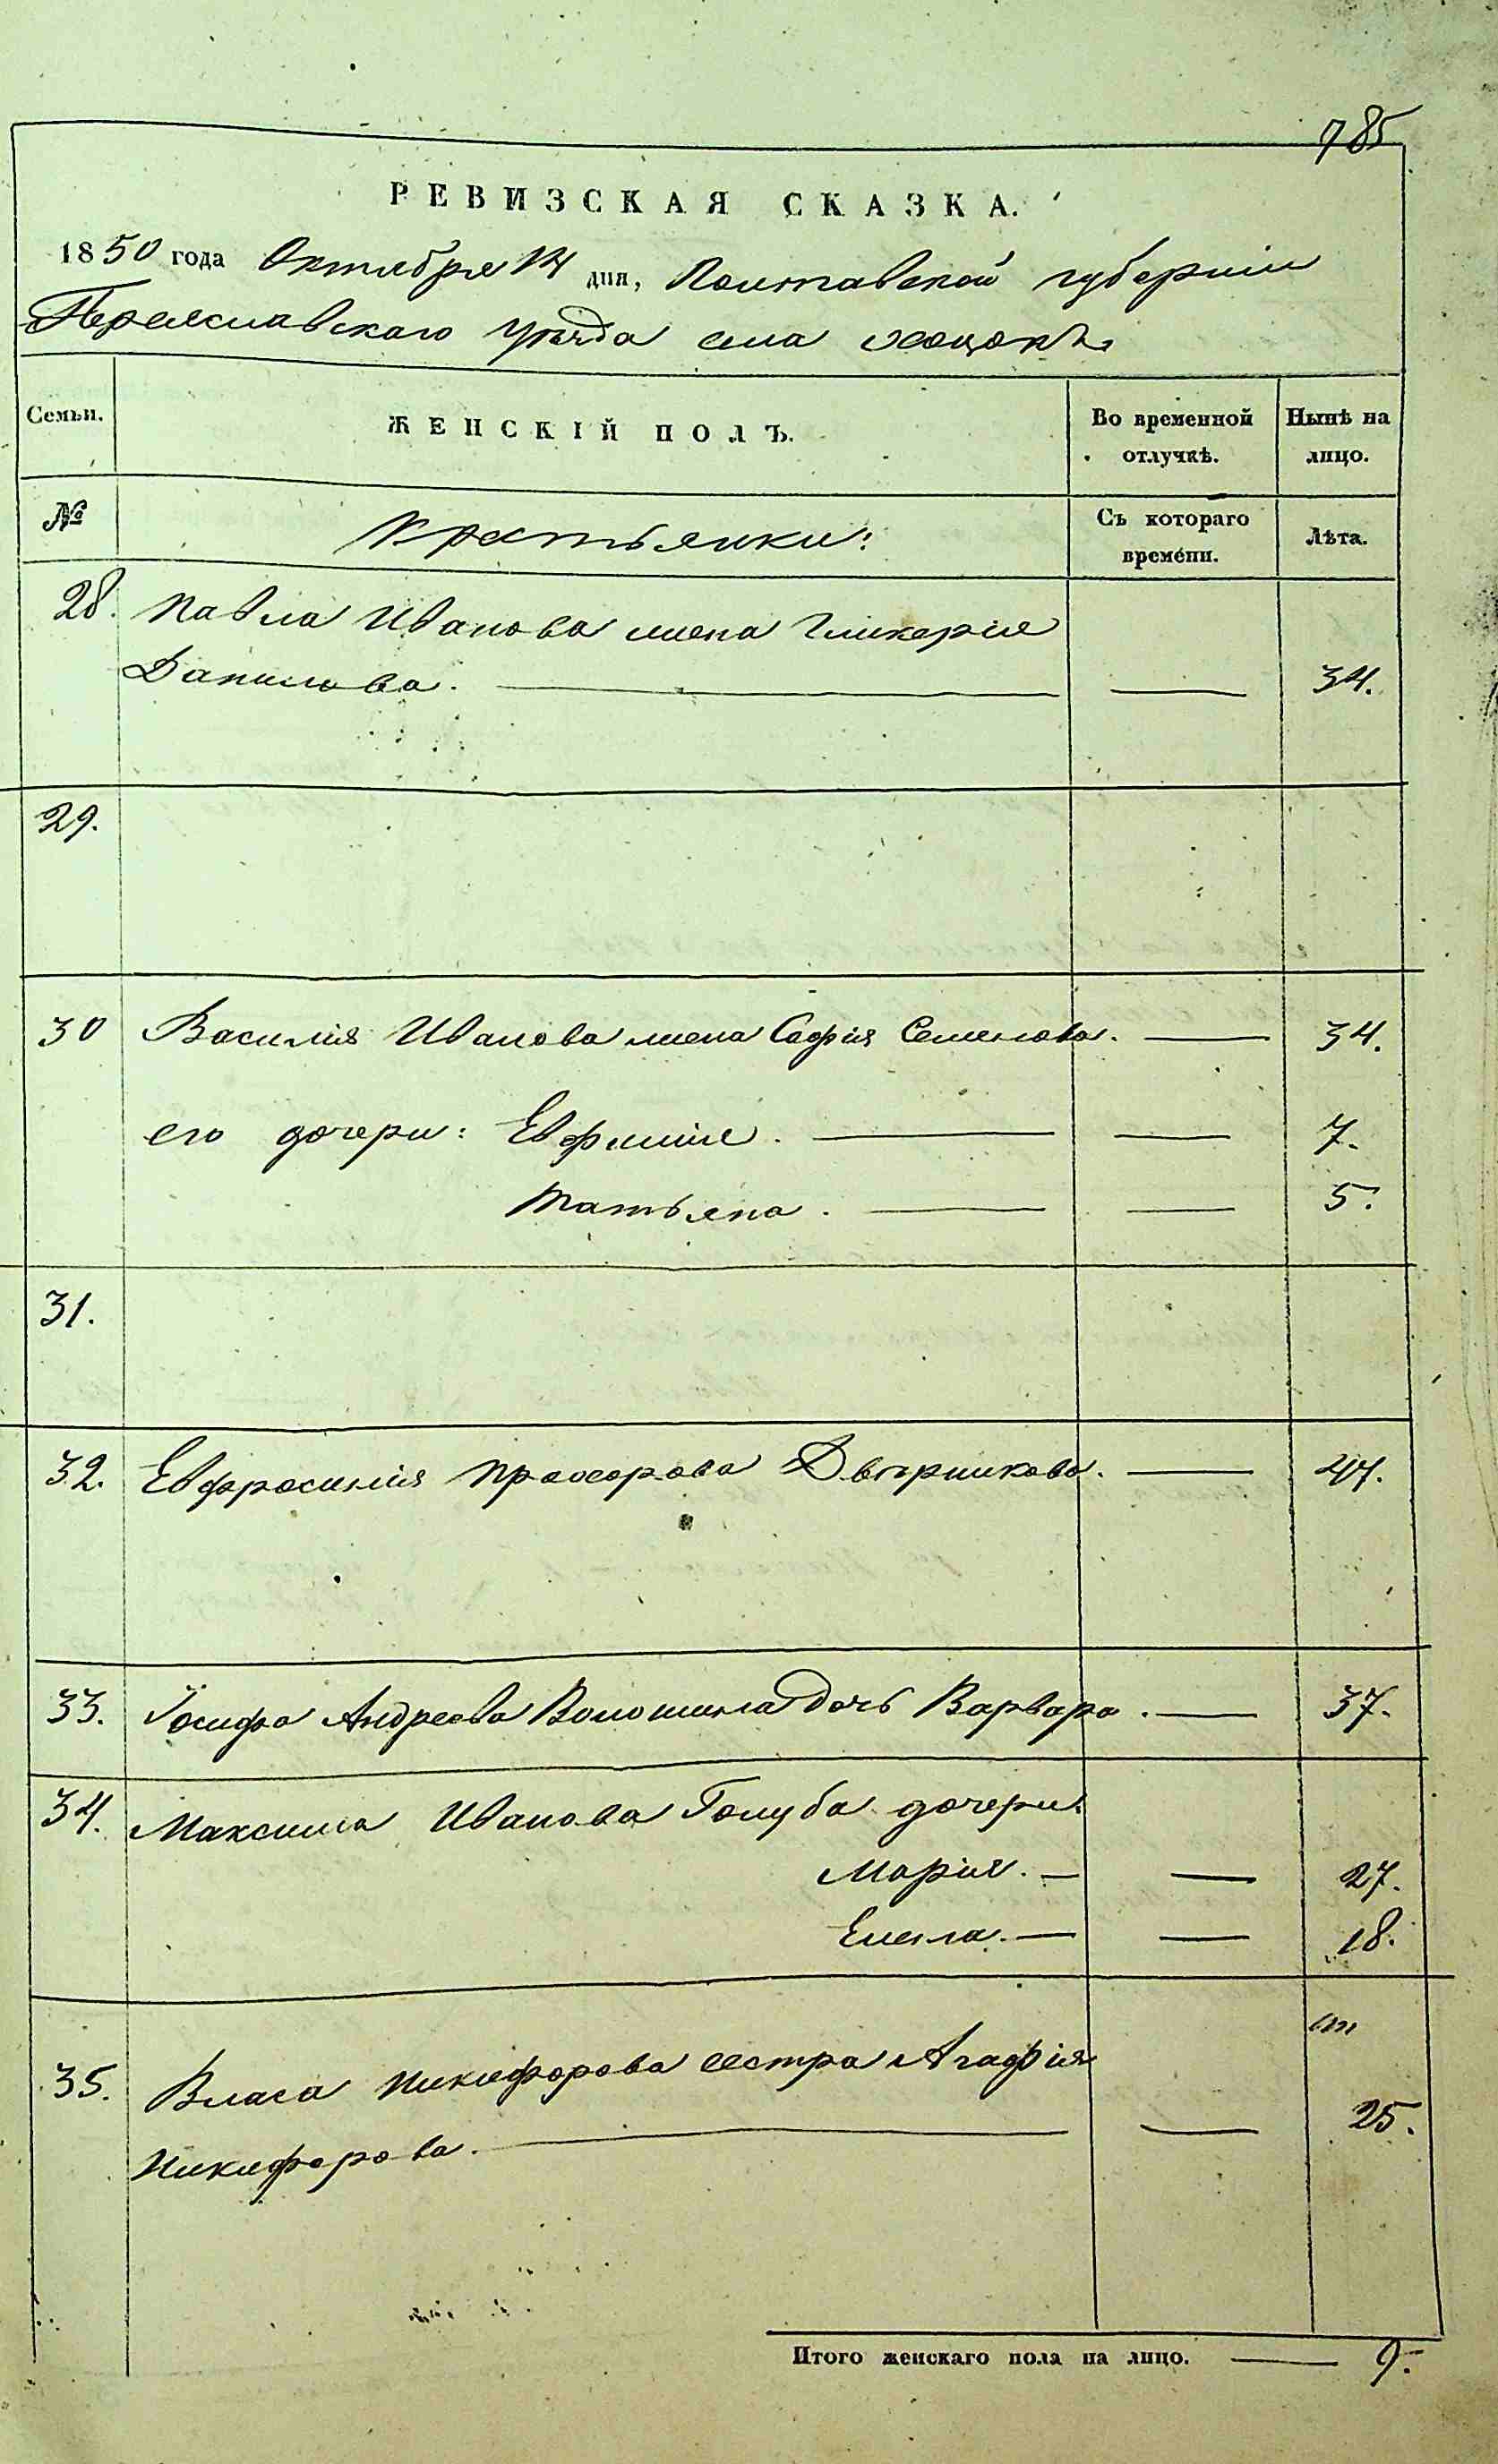 785
РЕВИЗСКАЯ СКАЗКА.
1850 года Октября 14 дня, Полтавской губернии
Переяславскаго уѣзда села Хоцокъ
Семьи. ЖЕНСКІЙ ПОЛЪ. Во временной отлучкѣ. Нынѣ на лицо.
№ Крестьянки: Съ котораго времени. Лѣта.
28. Павла Иванова жена Гликерія
Данилова. — — 34.
29.
30 Василія Иванова жена Софія Семенова. — 34.
его дочери: Евфимія. — — 7.
Татьяна. — — 5.
31.
32. Евфросинія Прохорова Двѣрникова. — 44.
33. Іосифа Андреева Волошина дочь Варвара. — 37.
34. Максима Иванова Голуба дочери:
Марія. — — 27.
Елена. — — 18.
35. Власа Никифорова сестра Агафія
Никифорова. — — 25.
Итого женскаго пола на лицо. — 9.